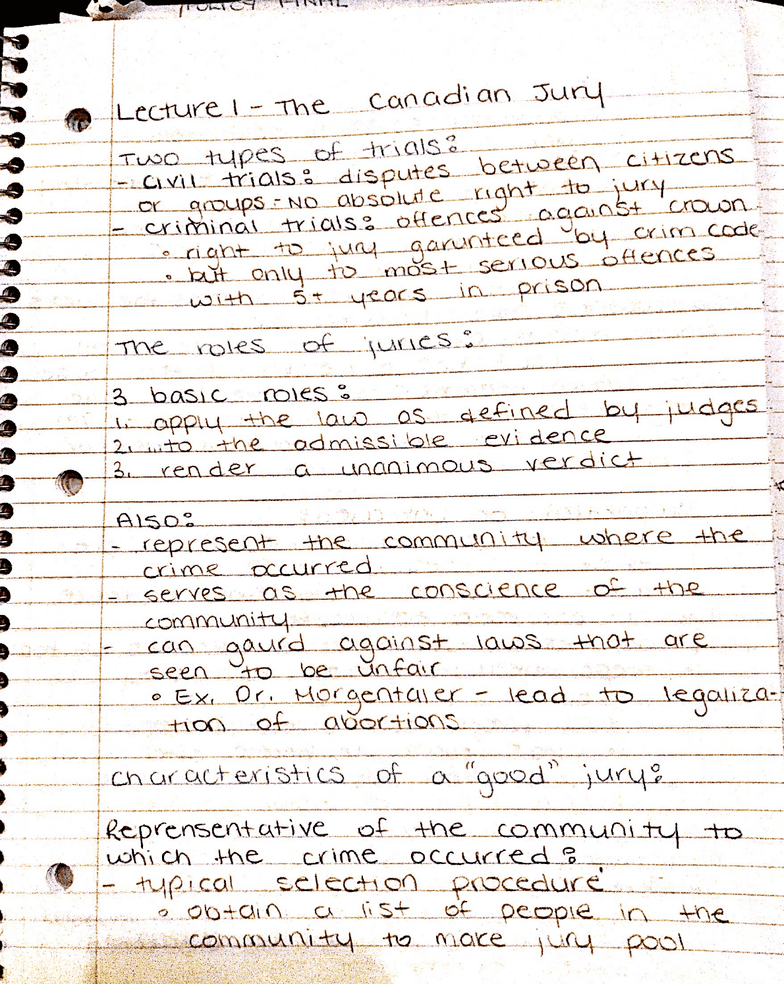 POLICY FINAL
Lecture 1 - The Canadian Jury
Two types of trials:
- civil trials: disputes between citizens
or groups - NO absolute right to jury
- criminal trials: offences against crown
◦ right to jury garunteed by crim code
◦ but only to most serious offences
with 5+ years in prison
The roles of juries:
3 basic roles:
1. apply the law as defined by judges
2. ...to the admissible evidence
3. render a unanimous verdict
Also:
- represent the community where the
crime occurred
- serves as the conscience of the
community
- can gaurd against laws that are
seen to be unfair
◦ Ex. Dr. Morgentaler - lead to legaliza-
tion of abortions
characteristics of a "good" jury:
Reprensentative of the community to
which the crime occurred:
- typical selection procedure
◦ obtain a list of people in the
community to make jury pool